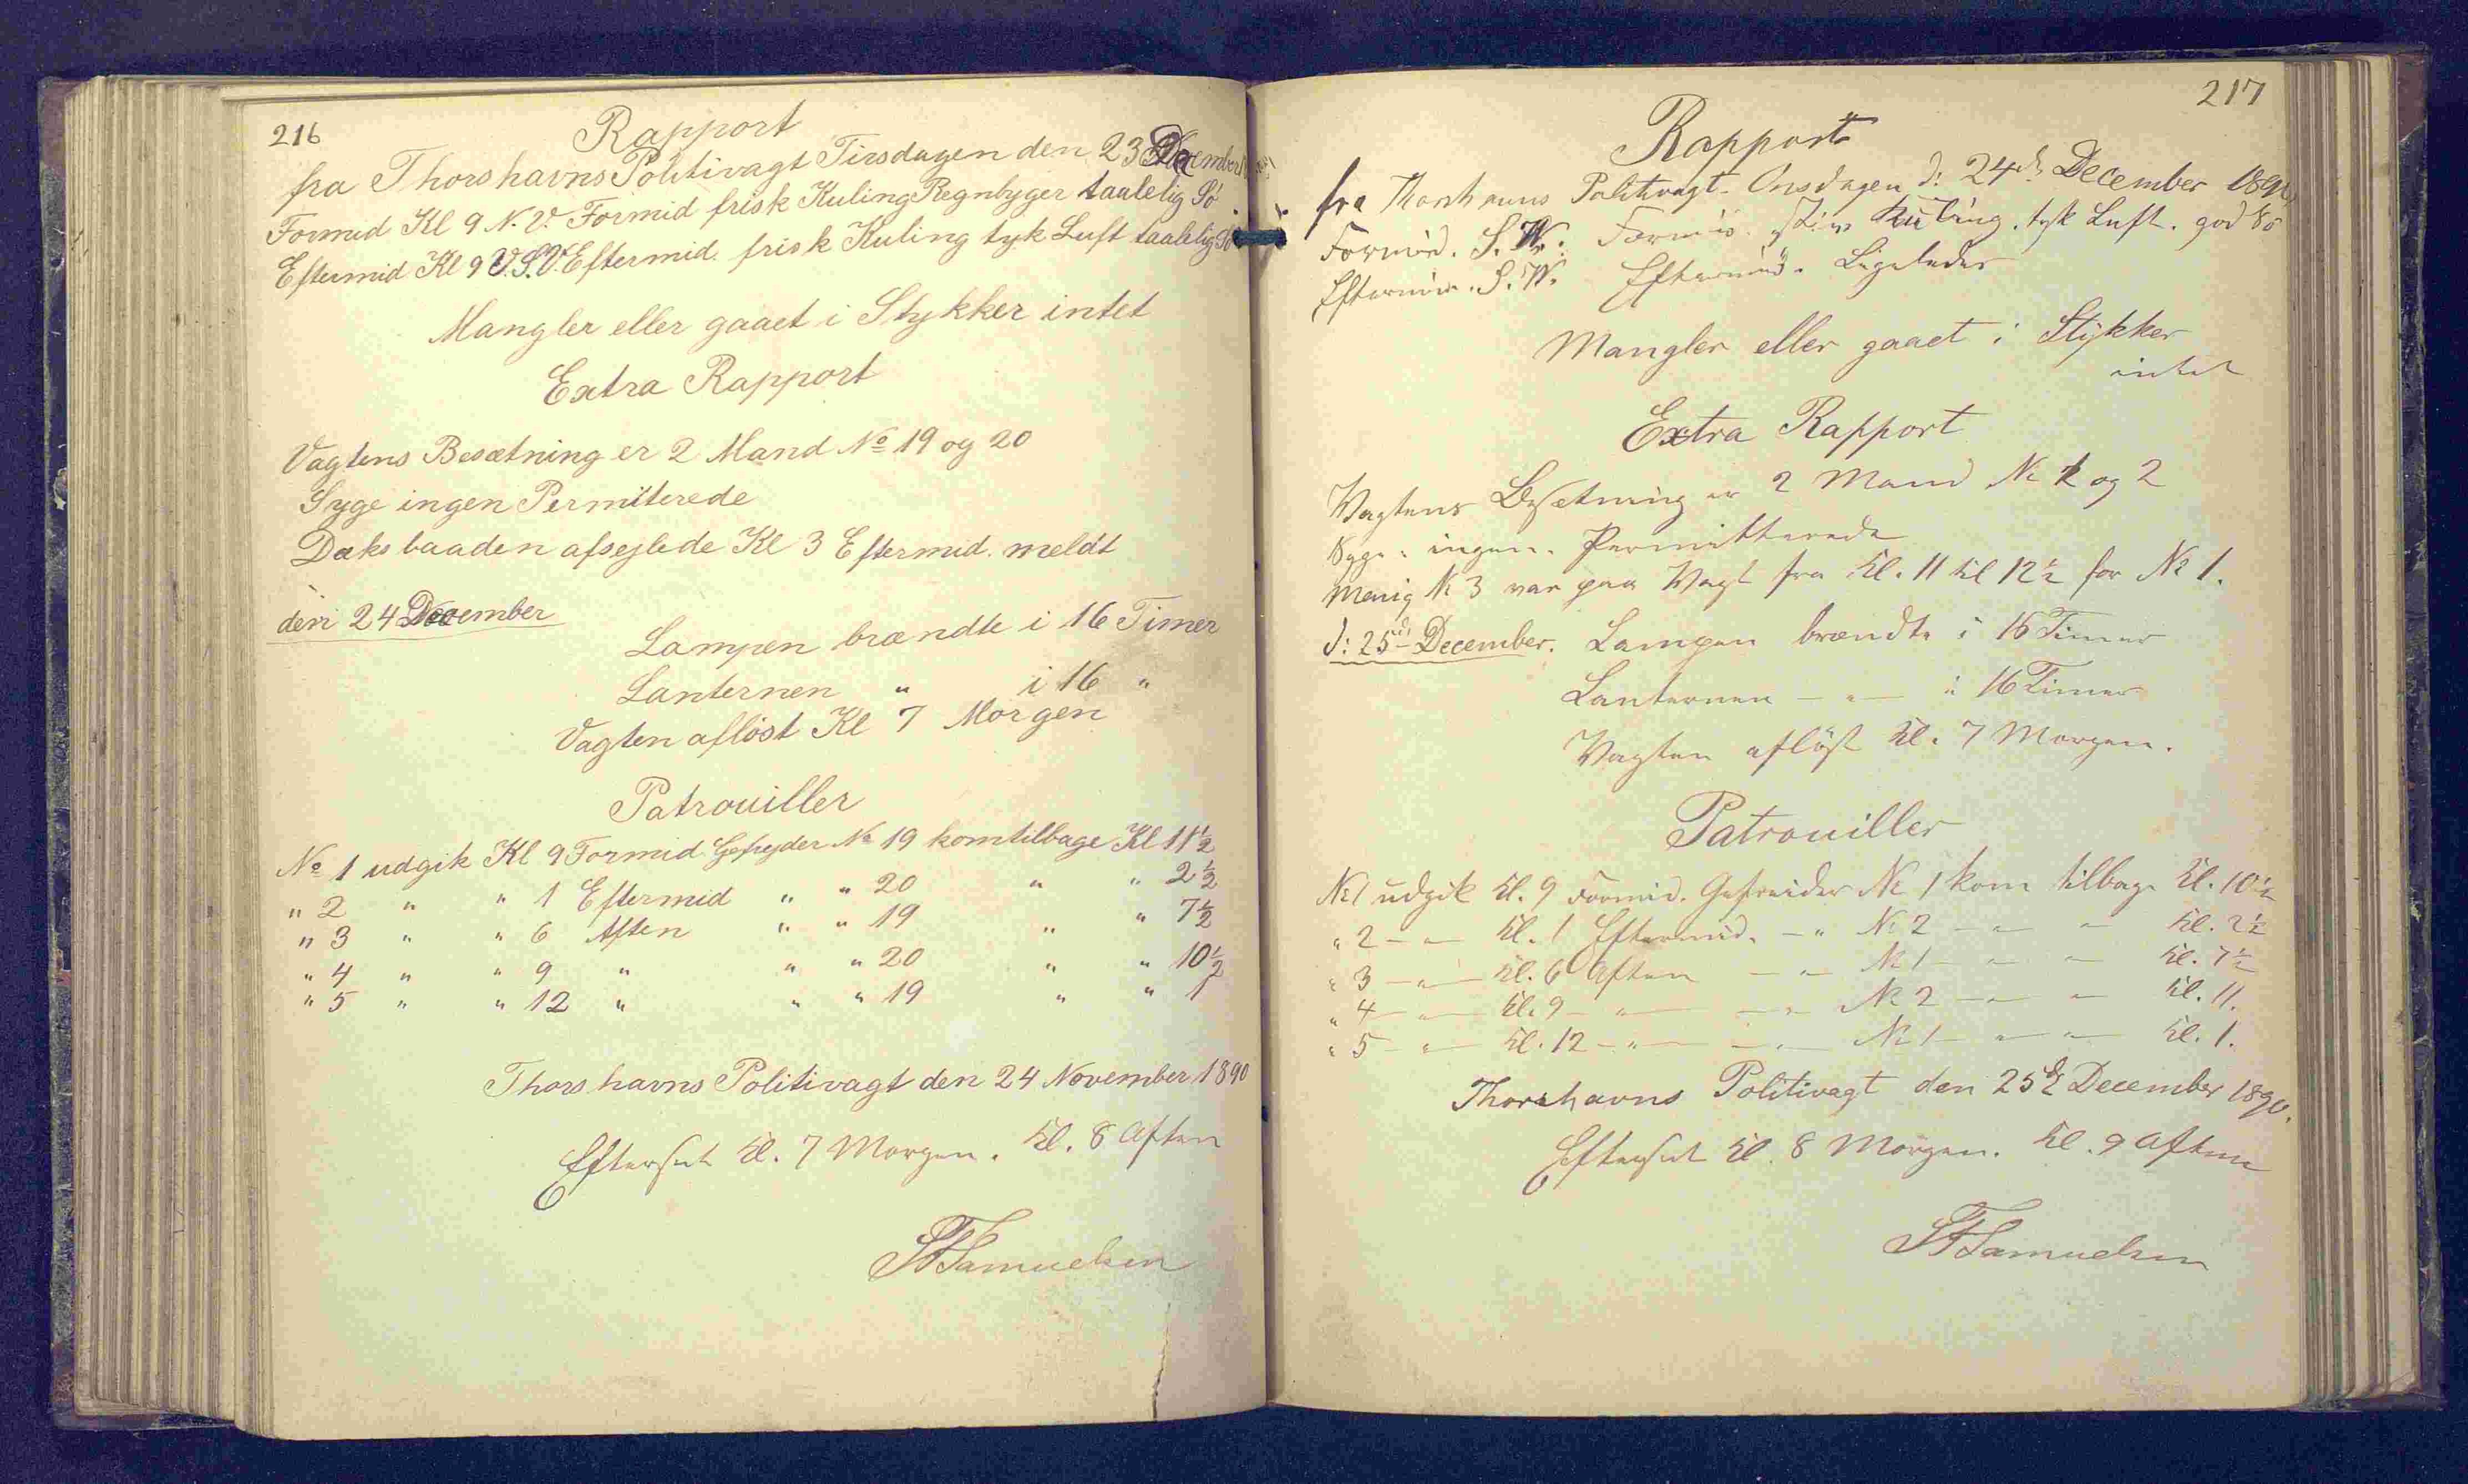 216
Rapport
fra Thorshavns Politivagt Tirsdagen den 23 December
Formid Kl 9 N.V. Formid frisk Kuling Regnbyger taalelig Sö
Eftermid Kl 9 V.S.V. Eftermid. frisk Kuling tyk Luft taalelig Sö
Mangler eller gaaet i Stykker intet
Extra Rapport
Vagtens Besætning er 2 Mand No 19 og 20
Syge ingen Permiterede
Dæksbaaden afsejlede Kl 3 Eftermid. meldt
den 24 December
Lampen brændte i 16 Timer
Lanternen " i 16 "
Vagten aflöst Kl 7 Morgen
Patrouiller
No 1 udgik Kl 9 Formid Gefrejder No 19 kom tilbage Kl 11½
" 2 " " 1 Eftermid " " 20 " " 2½
" 3 " " 6 Aften " " 19 " " 7½
" 4 " " 9 " " " 20 " " 10½
" 5 " " 12 " " " 19 " " 1
Thorshavns Politivagt den 24 November 1890
Efterset Kl. 7 Morgen. Kl. 8 Aften
Samuelsen
217
Rapport
fra Thorshavns Politivagt. Onsdagen d: 24de December 1890
Formid. S.W. Formid. stiv Kuling. tyk Luft. god Sö
Eftermid. S.W. Eftermid. Ligeledes
Mangler eller gaaet i Stykker
intet
Extra Rapport
Vagtens Besætning er 2 Mand No 1 og 2
Syge: ingen. Permitterede
Menig No 3 var paa Vagt fra Kl. 11 til 12½ for No 1.
d: 25de December. Lampen brændte i 16 Timer
Lanternen — " — i 16 Timer
Vagten aflöst Kl. 7 Morgen.
Patrouiller
No 1 udgik Kl. 9 Formid. Gefreider No 1 kom tilbage Kl. 10½
" 2 — " — Kl. 1 Eftermid. — " No 2 — " — " Kl. 2½
" 3 — " — Kl. 6 Aften — " — No 1 — " — " — Kl. 7½
" 4 — " — Kl. 9 — " — — " No 2 — " — " — Kl. 11.
" 5 — " — Kl. 12 — " — — " — No 1 — " — " — Kl. 1.
Thorshavns Politivagt den 25de December 1890.
Efterset Kl. 8 Morgen. Kl. 9 Aften
Samuelsen